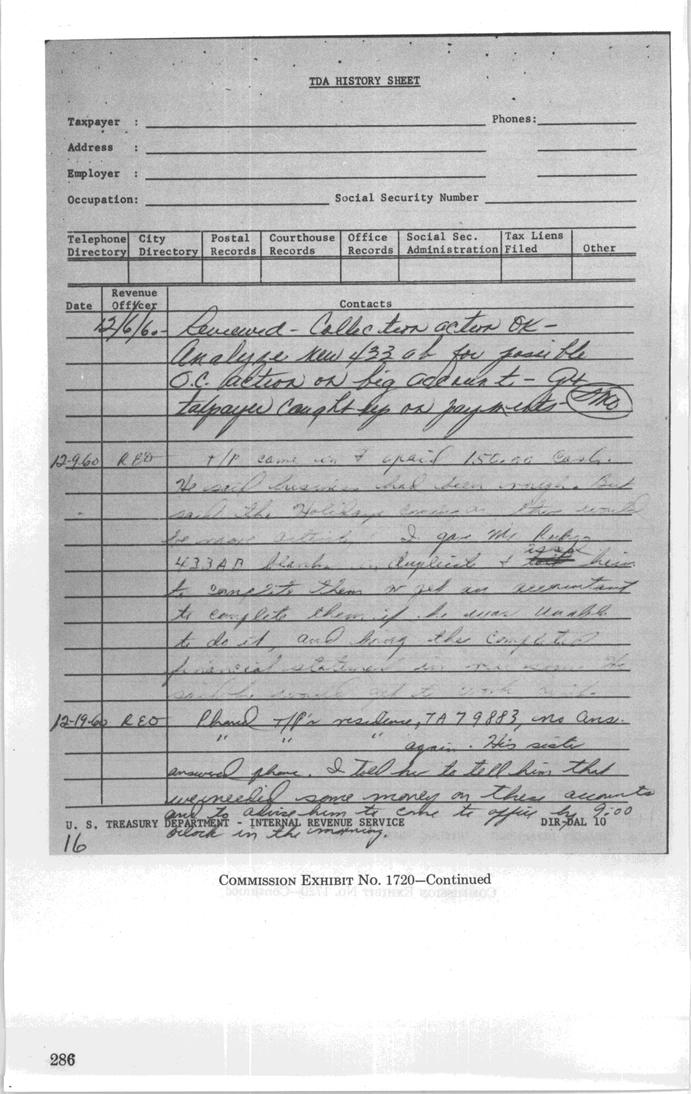 TDA HISTORY SHEET
Taxpayer : Phones:
Address :
Employer :
Occupation: Social Security Number
Telephone Directory City Directory Postal Records Courthouse Records Office Records Social Sec. Administration Tax Liens Filed Other
Date Revenue Officer Contacts
12/6/60- Reviewed - Collection action OK -
Analyze new 433 ab for possible
O.C. action on big account - Get
taxpayer caught up on payments -
12-9-60 REO T/P came in & paid 150.00 Cash.
He said business had been rough. But
said the Holidays coming on
be more I gave Mr Ruby
433AB blanks in duplicate & him
to complete them or get an accountant
to complete them if he was unable
to do it, and bring the completed
financial statement in He
said he would get to work
12-19-60 REO Phoned T/P's residence, TA 79883, no Ans.
" " " again. His sister
answered phone. I told her to tell him that
we needed some money on these accounts
and to advise him to come to office by 9:00
oclock in the morning.
U. S. TREASURY DEPARTMENT - INTERNAL REVENUE SERVICE DIR-DAL 10
16
COMMISSION EXHIBIT No. 1720—Continued
286